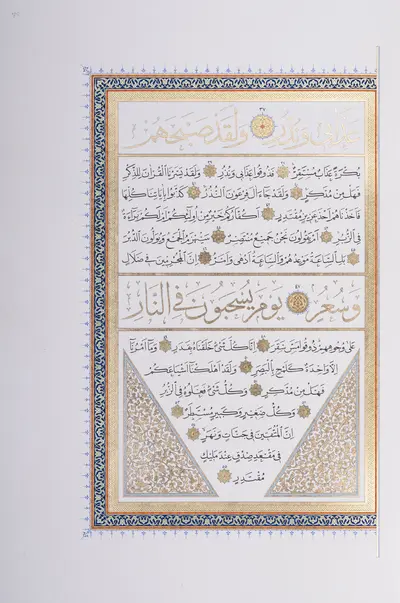 عَذَابِي وَنُذُرِ وَلَقَدْ صَبَّحَهُمْ
بُكْرَةً عَذَابٌ مُسْتَقِرٌّ فَذُوقُوا عَذَابِي وَنُذُرِ وَلَقَدْ يَسَّرْنَا الْقُرْاٰنَ لِلذِّكْرِ
فَهَلْ مِنْ مُدَّكِرٍ وَلَقَدْ جَاءَ اٰلَ فِرْعَوْنَ النُّذُرُ كَذَّبُوا بِاٰيَاتِنَا كُلِّهَا
فَاَخَذْنَاهُمْ اَخْذَ عَزِيزٍ مُقْتَدِرٍ اَكُفَّارُكُمْ خَيْرٌ مِنْ اُولٰئِكُمْ اَمْ لَكُمْ بَرَاءَةٌ
فِي الزُّبُرِ اَمْ يَقُولُونَ نَحْنُ جَمِيعٌ مُنْتَصِرٌ سَيُهْزَمُ الْجَمْعُ وَيُوَلُّونَ الدُّبُرَ
بَلِ السَّاعَةُ مَوْعِدُهُمْ وَالسَّاعَةُ اَدْهٰى وَاَمَرُّ اِنَّ الْمُجْرِمِينَ فِي ضَلَالٍ
وَسُعُرٍ يَوْمَ يُسْحَبُونَ فِي النَّارِ
عَلٰى وُجُوهِهِمْ ذُوقُوا مَسَّ سَقَرَ اِنَّا كُلَّ شَيْءٍ خَلَقْنَاهُ بِقَدَرٍ وَمَا اَمْرُنَا
اِلَّا وَاحِدَةٌ كَلَمْحٍ بِالْبَصَرِ وَلَقَدْ اَهْلَكْنَا اَشْيَاعَكُمْ
فَهَلْ مِنْ مُدَّكِرٍ وَكُلُّ شَيْءٍ فَعَلُوهُ فِي الزُّبُرِ
وَكُلُّ صَغِيرٍ وَكَبِيرٍ مُسْتَطَرٌ
اِنَّ الْمُتَّقِينَ فِي جَنَّاتٍ وَنَهَرٍ
فِي مَقْعَدِ صِدْقٍ عِنْدَ مَلِيكٍ
مُقْتَدِرٍ